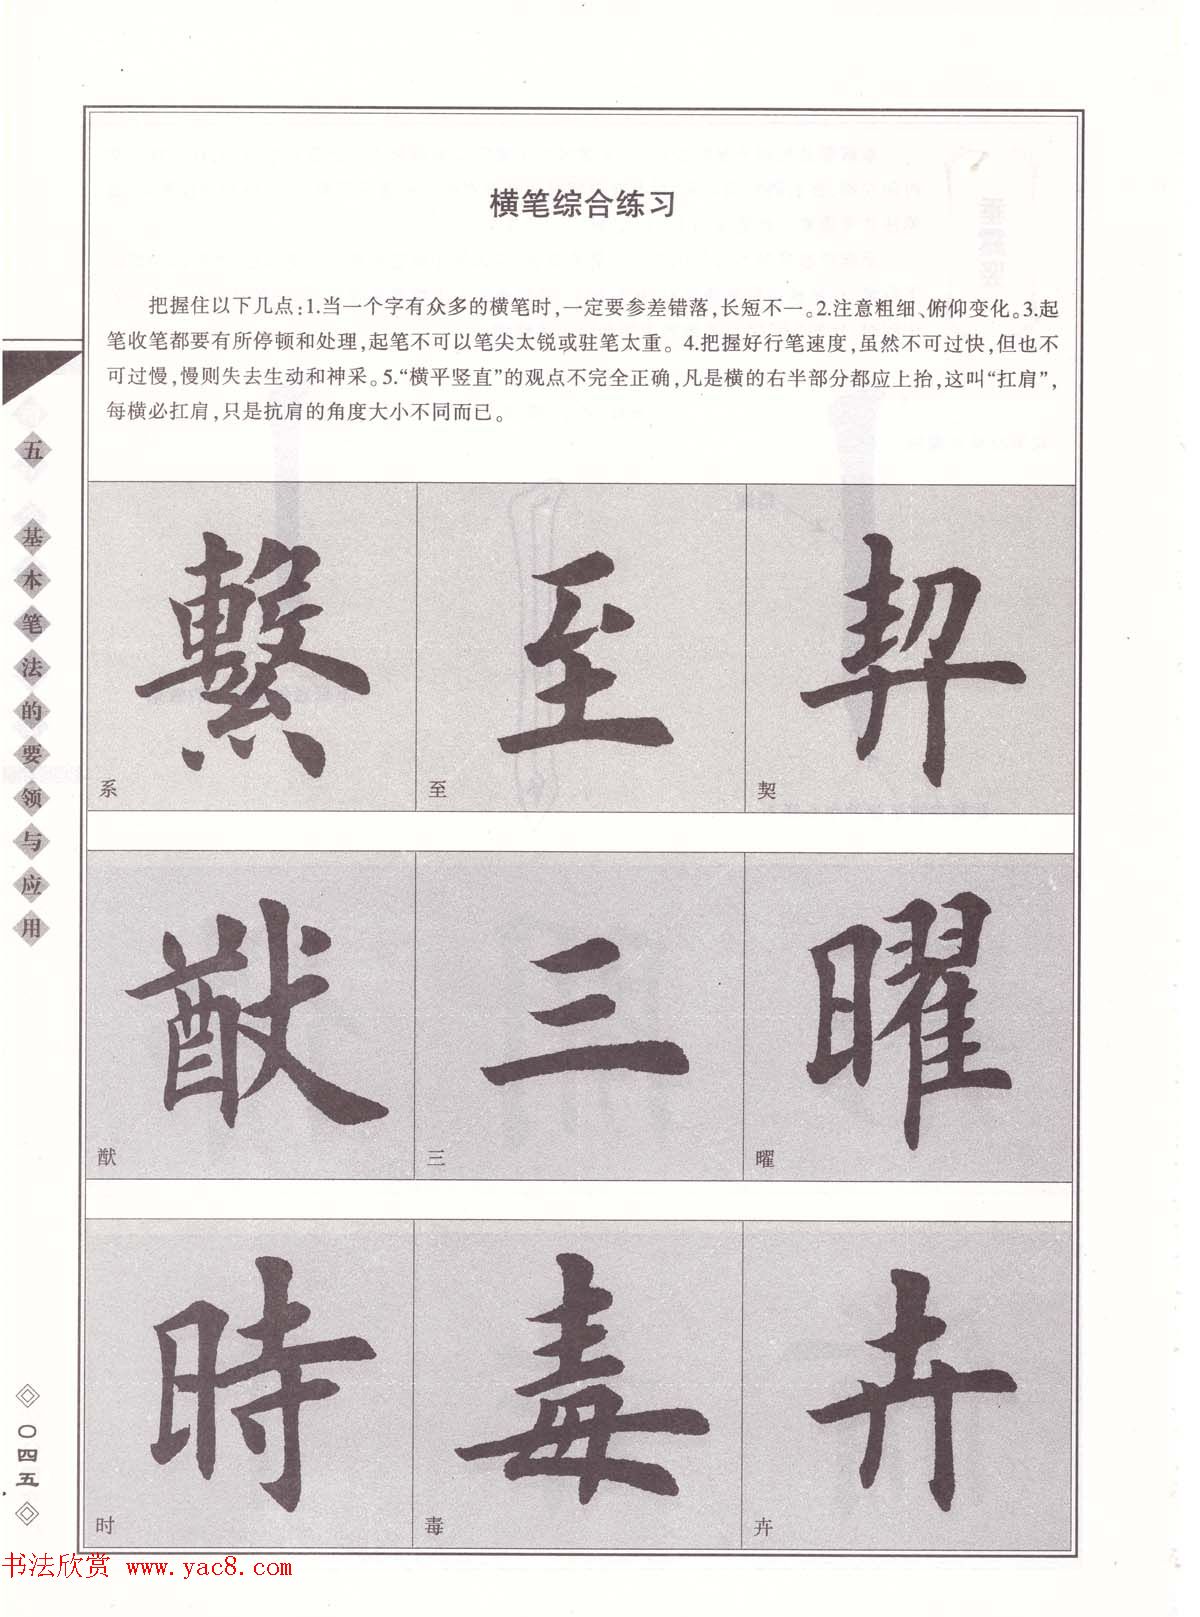 横笔综合练习
把握住以下几点:1.当一个字有众多的横笔时,一定要参差错落,长短不一。2.注意粗细、俯仰变化。3.起
笔收笔都要有所停顿和处理,起笔不可以笔尖太锐或驻笔太重。 4.把握好行笔速度,虽然不可过快,但也不
可过慢,慢则失去生动和神采。5.“横平竖直”的观点不完全正确,凡是横的右半部分都应上抬,这叫“扛肩”,
每横必扛肩,只是抗肩的角度大小不同而已。
五 基本笔法的要领与应用
繫 至 契
系 至 契
猷 三 曜
猷 三 曜
時 毒 卉
时 毒 卉
〇四五
书法欣赏 www.yac8.com